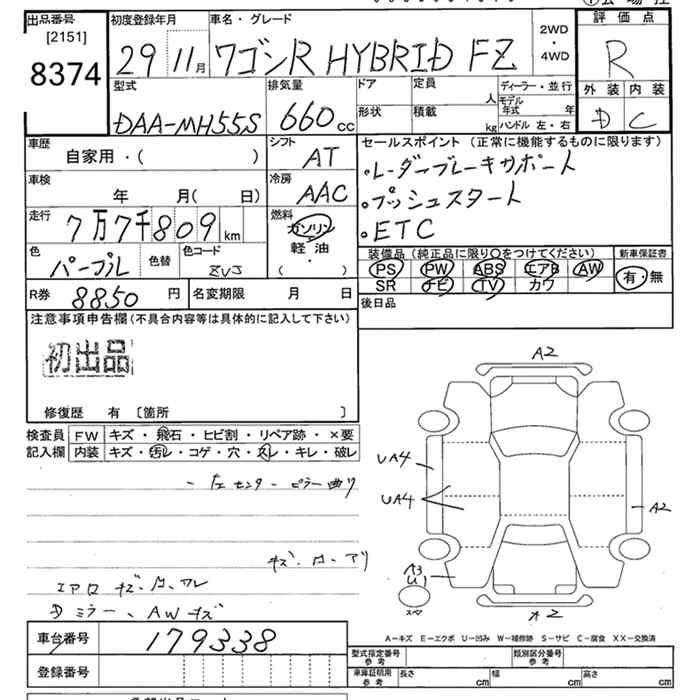 出品番号 初度登録年月 車名・グレード 2WD・4WD 評価点
[2151]
8374 29 11月 ワゴンR HYBRID FZ R
型式 排気量 ドア 定員 人 ディーラー・並行 外装 内装
DAA-MH55S 660cc 形状 積載 kg モデル年式 年 ハンドル 左・右 D C
車歴 シフト セールスポイント (正常に機能するものに限ります)
自家用・( ) AT ・レーダーブレーキサポート
車検 冷房 ・プッシュスタート
年 月( 日) AAC ・ETC
走行 燃料
7万7千809km ガソリン
軽油
( ・ )
色 色替 色コード 装備品 (純正品に限り○をつけてください) 新車保証書
パープル ZVJ PS PW ABS エアB AW 有・無
SR ナビ TV カワ
R券 8850円 名変期限 月 日 後日品
注意事項申告欄 (不具合内容等は具体的に記入して下さい)
初出品
修復歴 有 [箇所 ]
検査員 FW キズ・飛石・ヒビ割・リペア跡・×要
記入欄 内装 キズ・汚レ・コゲ・穴・スレ・キレ・破レ
A2
UA4
UA4
A2
A3
U1
スペ
A2
-左センターピラー曲り
エアロ キズ
ミラー、AWキズ
A-キズ E-エクボ U-凹み W-補修跡 S-サビ C-腐食 XX-交換済
車台番号 179338
登録番号
型式指定番号 参考 類別区分番号 参考
車庫証明用 参考 長さ cm 幅 cm 高さ cm